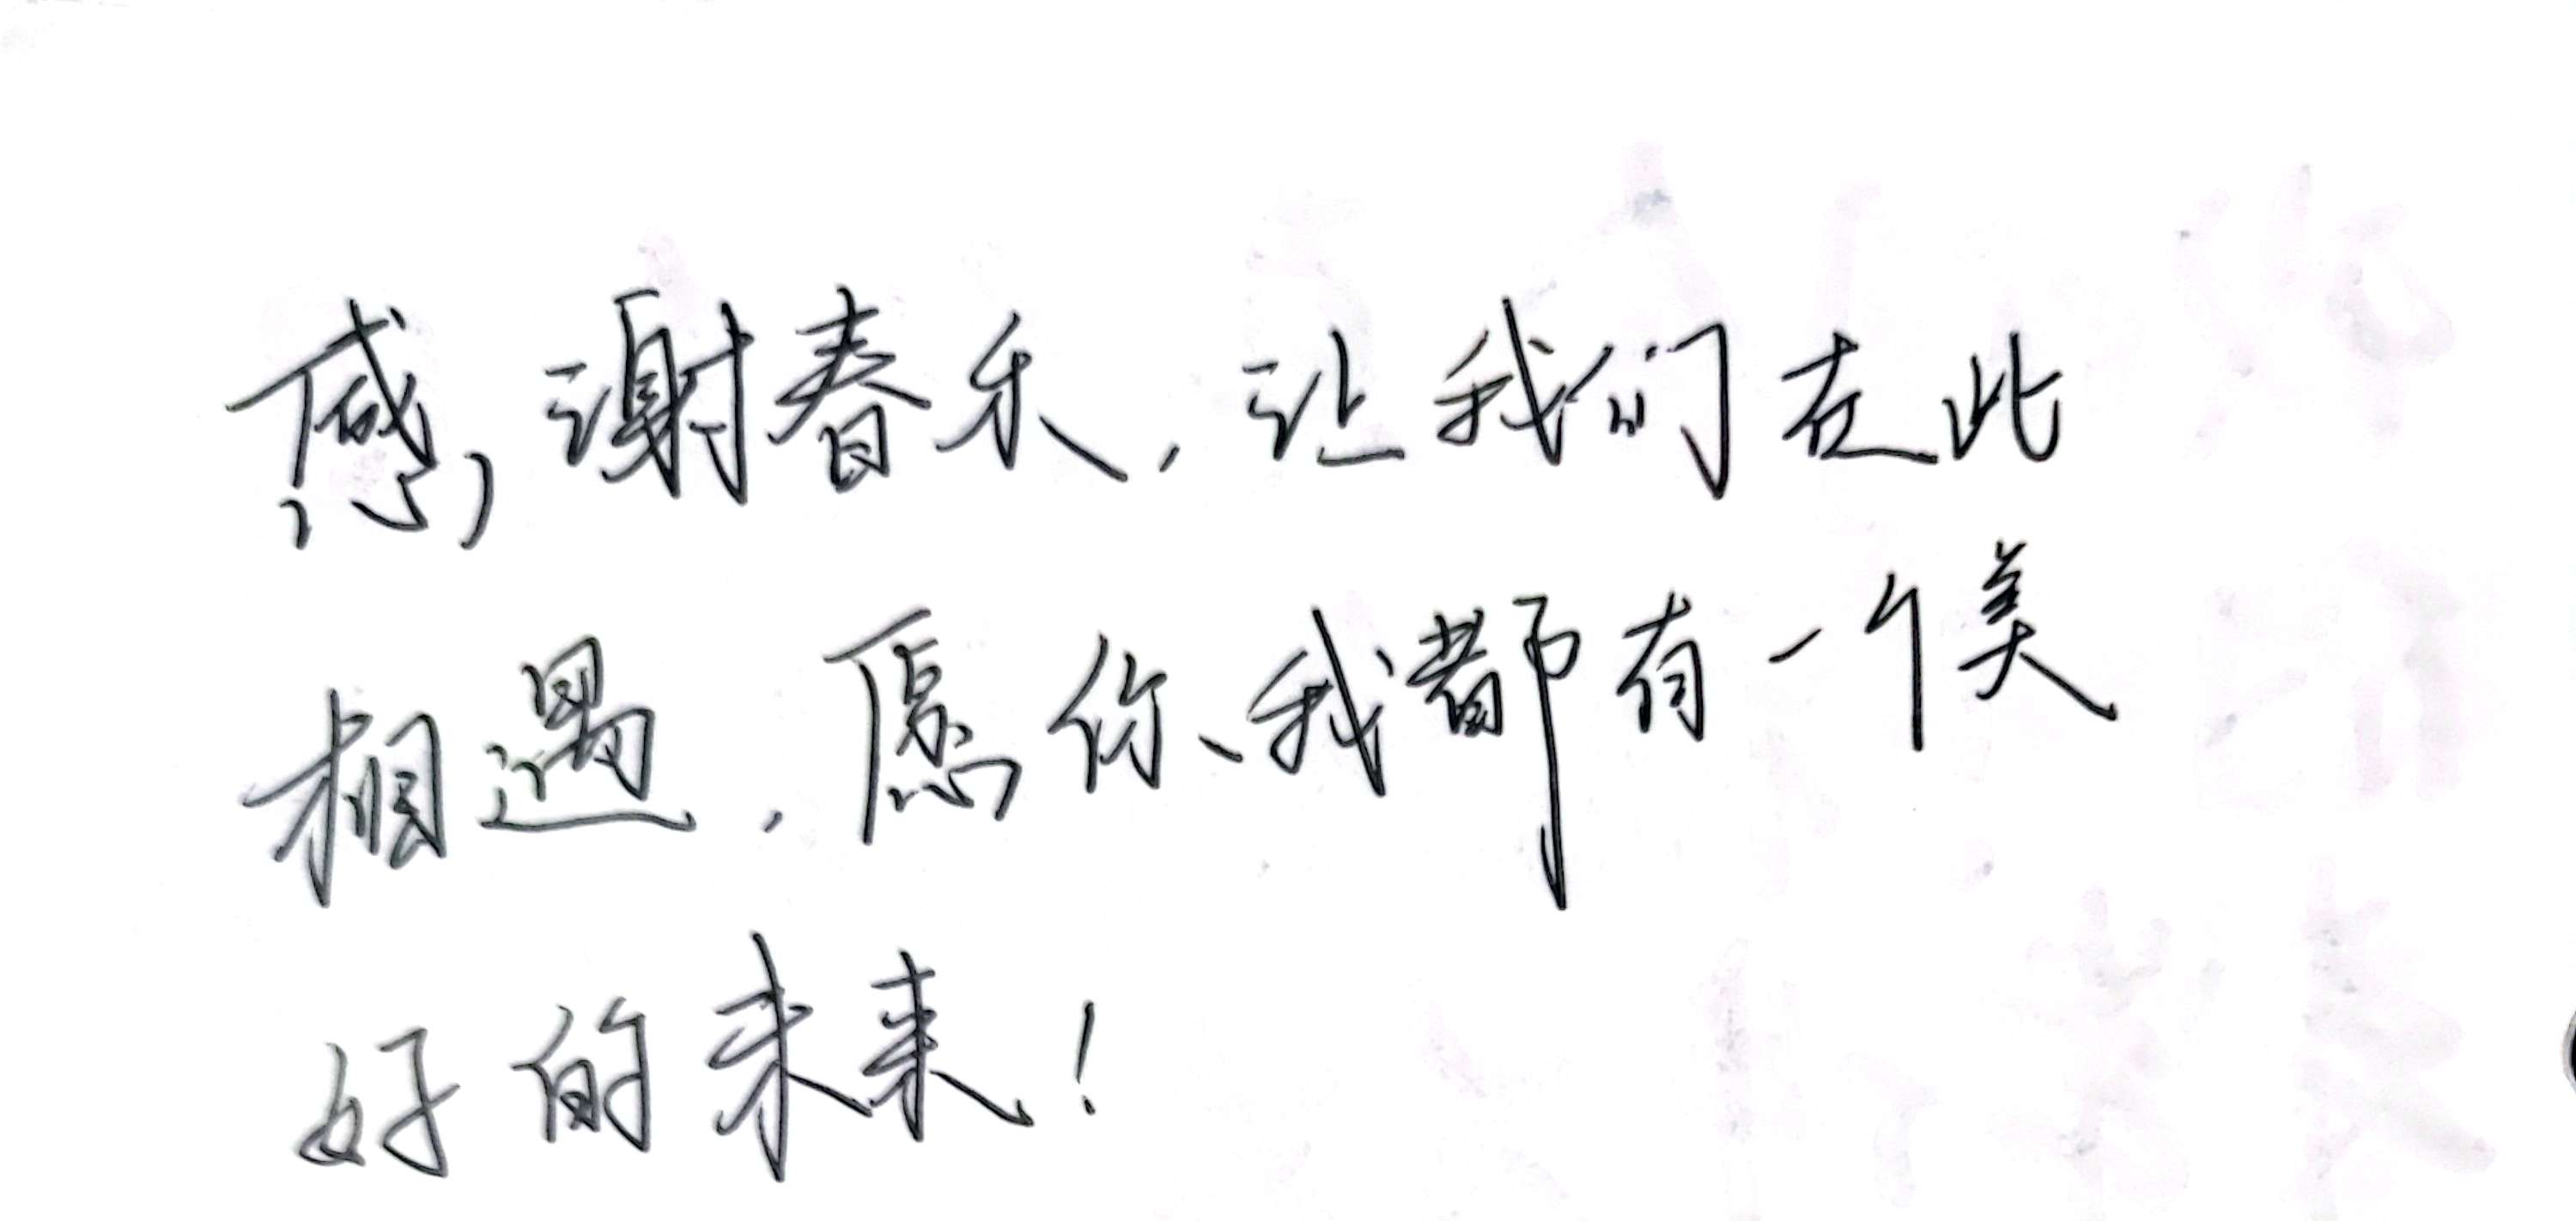 感谢春禾，让我们在此
相遇，愿你、我都有一个美
好的未来！